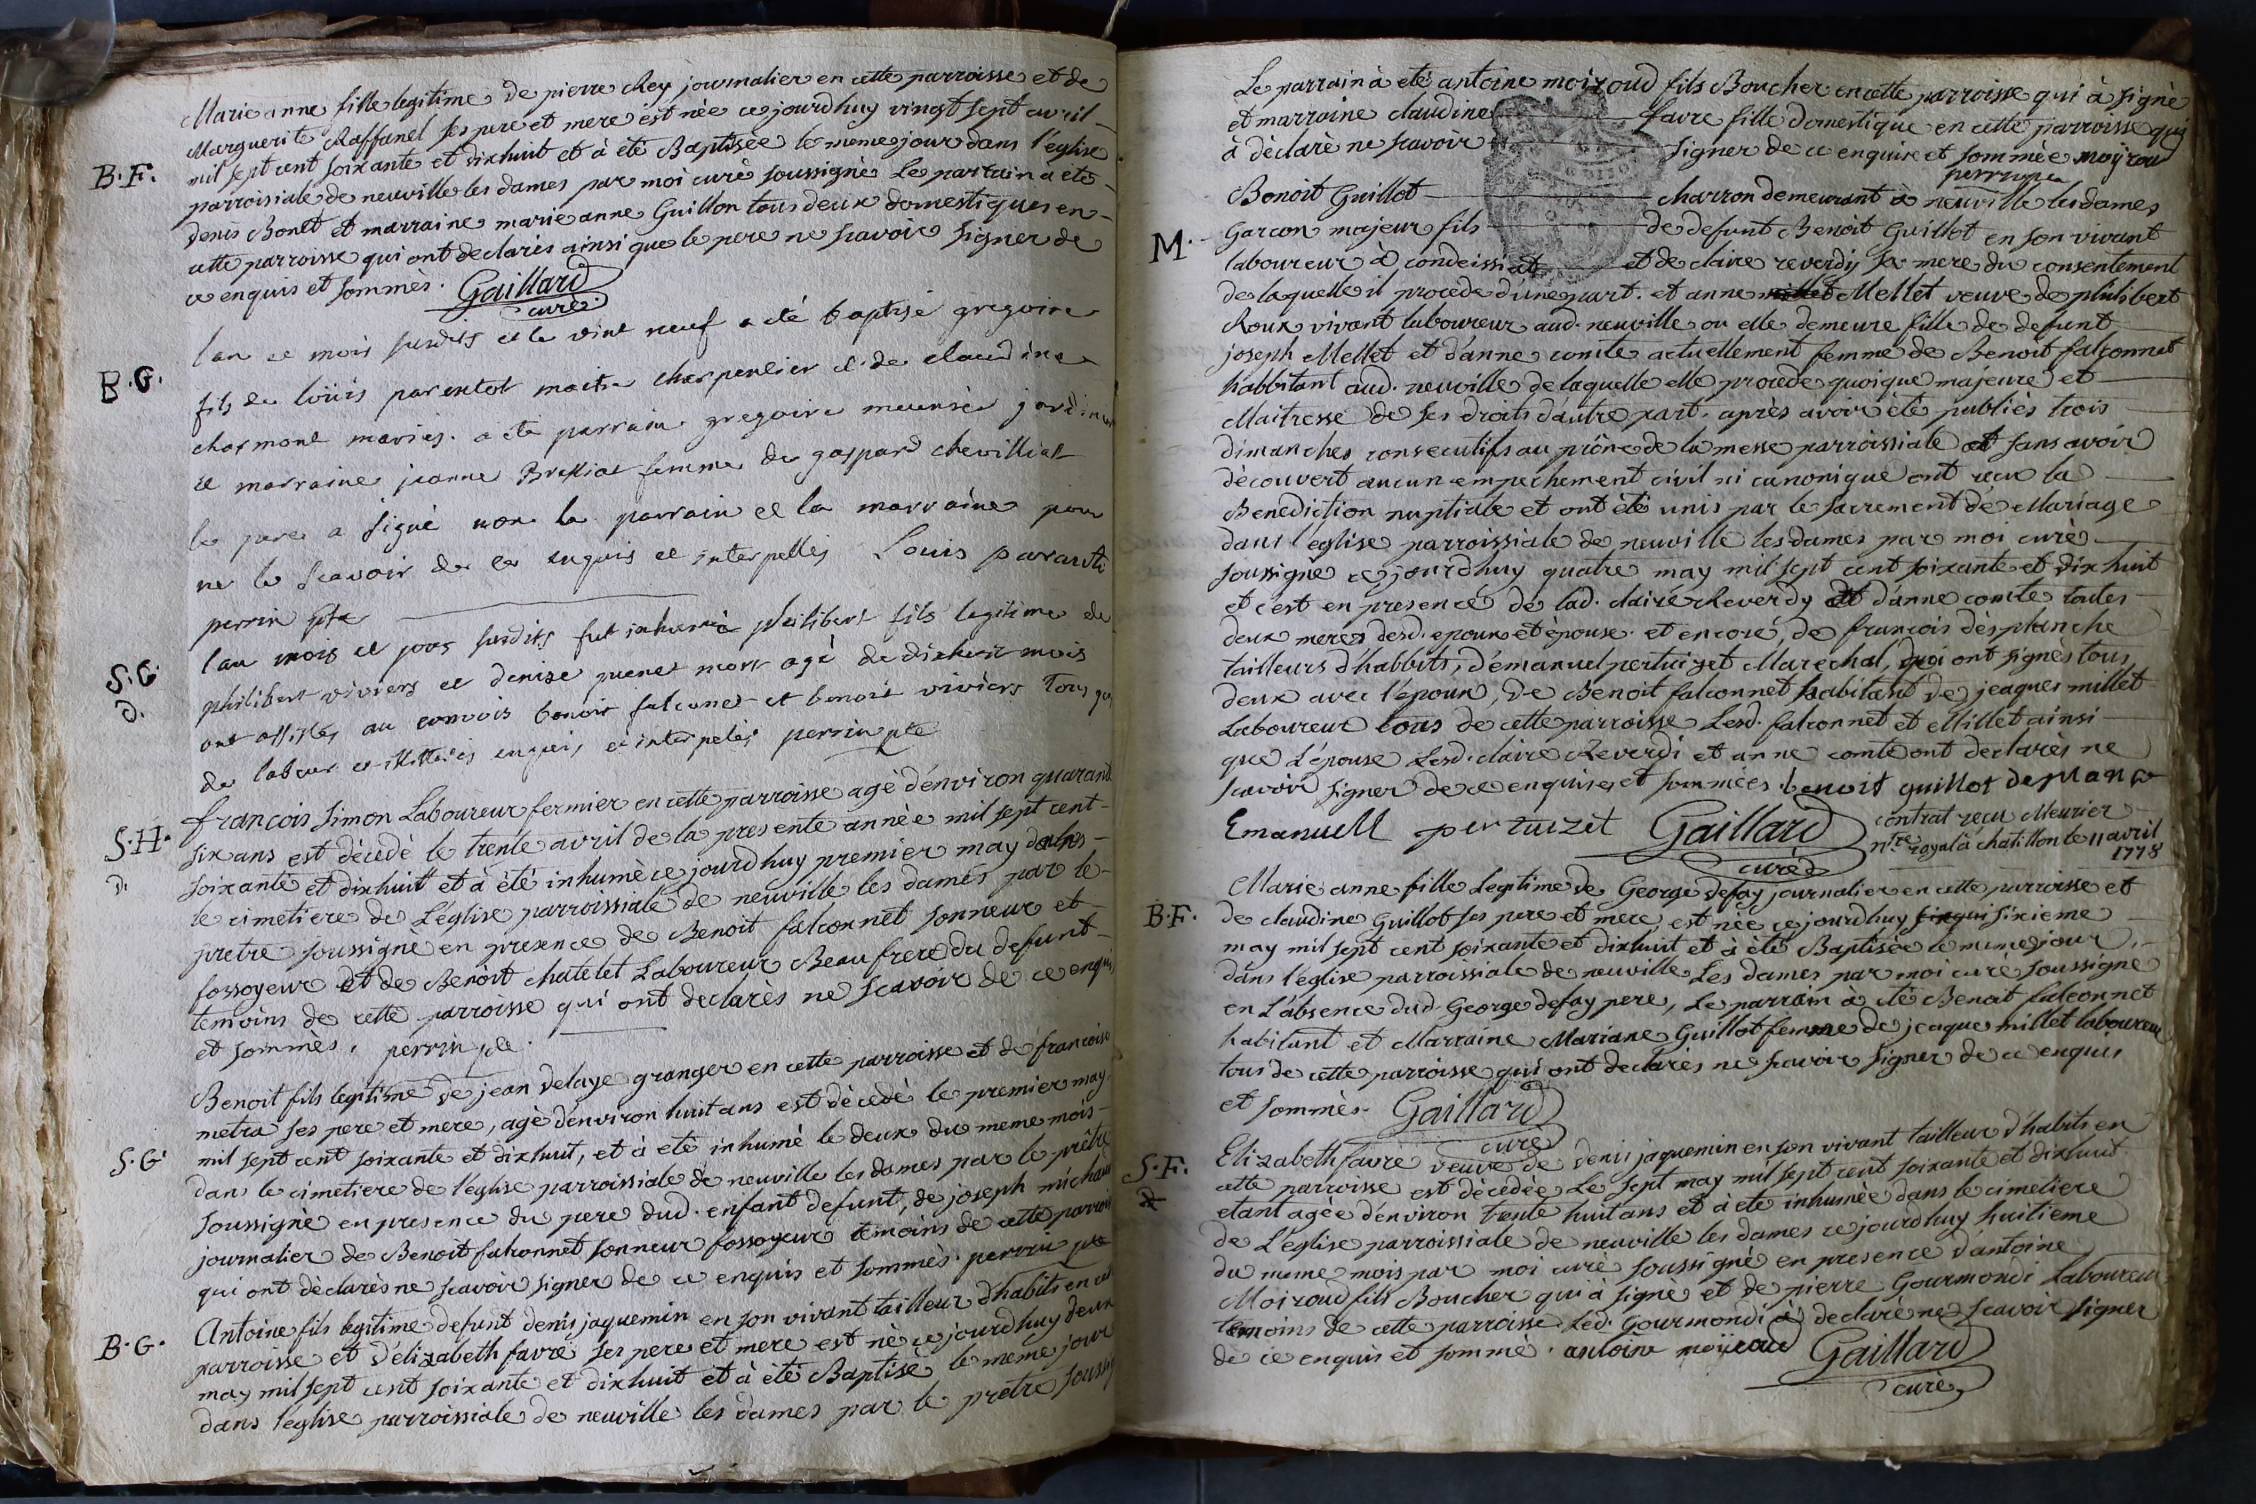 Marie anne fille legitime de pierre Rey journalier en cette parroisse et de
Marguerite Raffanel ses pere et mere est née ce jourdhuy vingt sept avril
B.F.
mil sept cent soixante et dixhuit et à été Baptisée le même jour dans l'église
parroisiale de neuville les dames par moi curé soussigné Le parrain a eté
denis Bonet et marraine marie anne Guillon tous deux domestiques en
cette parroisse qui ont declarés ainsi que le pere ne scavoir signer de
ce enquis et sommés. Gaillard
curé
l'an et mois susdits et le vint neuf a été baptisé gregoire
B.G.
fils de loüis parentet maitre charpentier et de claudine
charmont mariés. a été parrain gregoire meunier jardinier
et marraine jeanne Bressiat femme de gaspard chevilliat
le pere a signé non le parrain et la marraine pour
ne le scavoir de ce enquis et interpellés Louis
perrin ptre
l'an mois et jour susdits fut inhumé philibert fils legitime de
S.G.
d.
philibert viviers et denise mort agé de dixhuit mois
ont assistés au convois benoit falconet et benoit viviers Tous
de labeur et illitterés enquis et interpelés perrin ptre
françois Simon Laboureur fermier en cette parroisse agé d'environ quarante
S.H.
d.
six ans est décedé le trente avril de la presente année mil sept cent
soixante et dixhuit et à été inhumé ce jourdhuy premier may dans
le cimetiere de L'église parroissiale de neuville les dames par le
pretre soussigné en presence de Benoit falconnet sonneur et
fossoyeur et de Benoit chatelet Laboureur Beaufrere du defunt
temoins de cette parroisse qui ont declarés ne scavoir de ce enquis
et sommés. perrin ptre
Benoit fils legitime de jean delaye granger en cette parroisse et de francoise
metra ses pere et mere, agé d'environ huit ans est décedé le premier may
S.G
mil sept cent soixante et dixhuit, et à eté inhumé le deux du meme mois
dans le cimetiere de l'eglise parroissiale de neuville les dames par le prêtre
soussigné en presence du pere dud. enfant defunt, de joseph michaud
journalier de Benoit falconnet sonneur fossoyeur temoins de cette parroisse
qui ont déclarés ne scavoir signer de ce enquis et sommés. perrin ptre
B.G.
Antoine fils legitime defunt denis jaquemin en son vivant tailleur d'habits en cette
parroisse et d'élizabeth favre ses pere et mere est né ce jourdhuy deux
may mil sept cent soixante et dixhuit et à été Baptisé le meme jour
dans l'eglise parroissiale de neuville les dames par le pretre soussigné
Le parrain à eté antoine moiroud fils Boucher en cette parroisse qui à signé
et marraine claudine favre fille domestique en cette parroisse qui
à déclaré ne scavoir signer de ce enquise et sommée moÿroud
perrin ptre
Benoit Guillot charron demeurant à neuville les dames
M.
Garcon majeur fils de defunt Benoit Guillot en son vivant
laboureur à condeissiat et de claire reverdy sa mere du consentement
de laquelle il procede d'une part. et anne Mellet veuve de philibert
Roux vivant laboureur aud. neuville ou elle demeure fille de defunt
joseph Mellet et d'anne comte actuellement femme de Benoit falconnet
habbitant aud. neuville de laquelle elle procede quoique majeure et
Maitresse de ses droits d'autre part. après avoir été publiés trois
dimanches consecutifs au prône de la messe parroissiale et sans avoir
découvert aucun empechement civil ni canonique ont reçu la
Benediction nuptiale et ont été unis par le sacrement de Mariage
dans l'église parroissiale de neuville les dames par moi curé
soussigné ce jourdhuy quatre may mil sept cent soixante et dix huit
et c'est en presence de lad. claire Reverdy et d'anne comte toutes
deux meres desd. epoux et épouse. et encore, de francois desplanche
tailleurs d'habbits, d'émanuel pertuizet Marechal, qui ont signés tous
deux avec l'époux, De Benoit falconnet habitant de jeaques millet
Laboureur tous de cette parroisse Lesd. falconnet et Millet ainsi
que L'épouse Lesd. claire Reverdi et anne comte ont declarés ne
scavoir signer de ce enquises et sommées benoit guillot deplanche
Emanuell pertuizet Gaillard
curé
contrat reçu Meurier
n.re royal à chatillon le 11 avril
1778
Marie anne fille Legitime de George defay journalier en cette parroisse et
B.F.
de claudine Guillot ses pere et mere, est née ce jourdhuy sixieme
may mil sept cent soixante et dixhuit et à été Baptisée le meme jour
dans l'église parroissiale de neuville Les dames par moi curé soussigné
en L'absence dud. George defay pere, Le parrain à eté Benoit falconnet
habitant et Marraine Mariane Guillot femme de jeaque millet laboureur
tous de cette parroisse qui ont declarés ne scavoir signer de ce enquis
et sommés. Gaillard
curé
Elizabeth favre veuve de denis jaquemin en son vivant tailleur d'habits en
S.F.
cette parroisse est décedée Le sept may mil sept cent soixante et dixhuit
etant agée d'environ trente huit ans et à eté inhumée dans le cimetiere
de L'église parroissiale de neuville les dames ce jourdhuy huitieme
du meme mois par moi curé soussigné en presence d'antoine
Moiroud fils Boucher qui à signé et de pierre Gourmondi Laboureur
temoins de cette parroisse. Led. Gourmondi à declaré ne scavoir signer
de ce enquis et sommé. antoine moÿroud Gaillard
curé